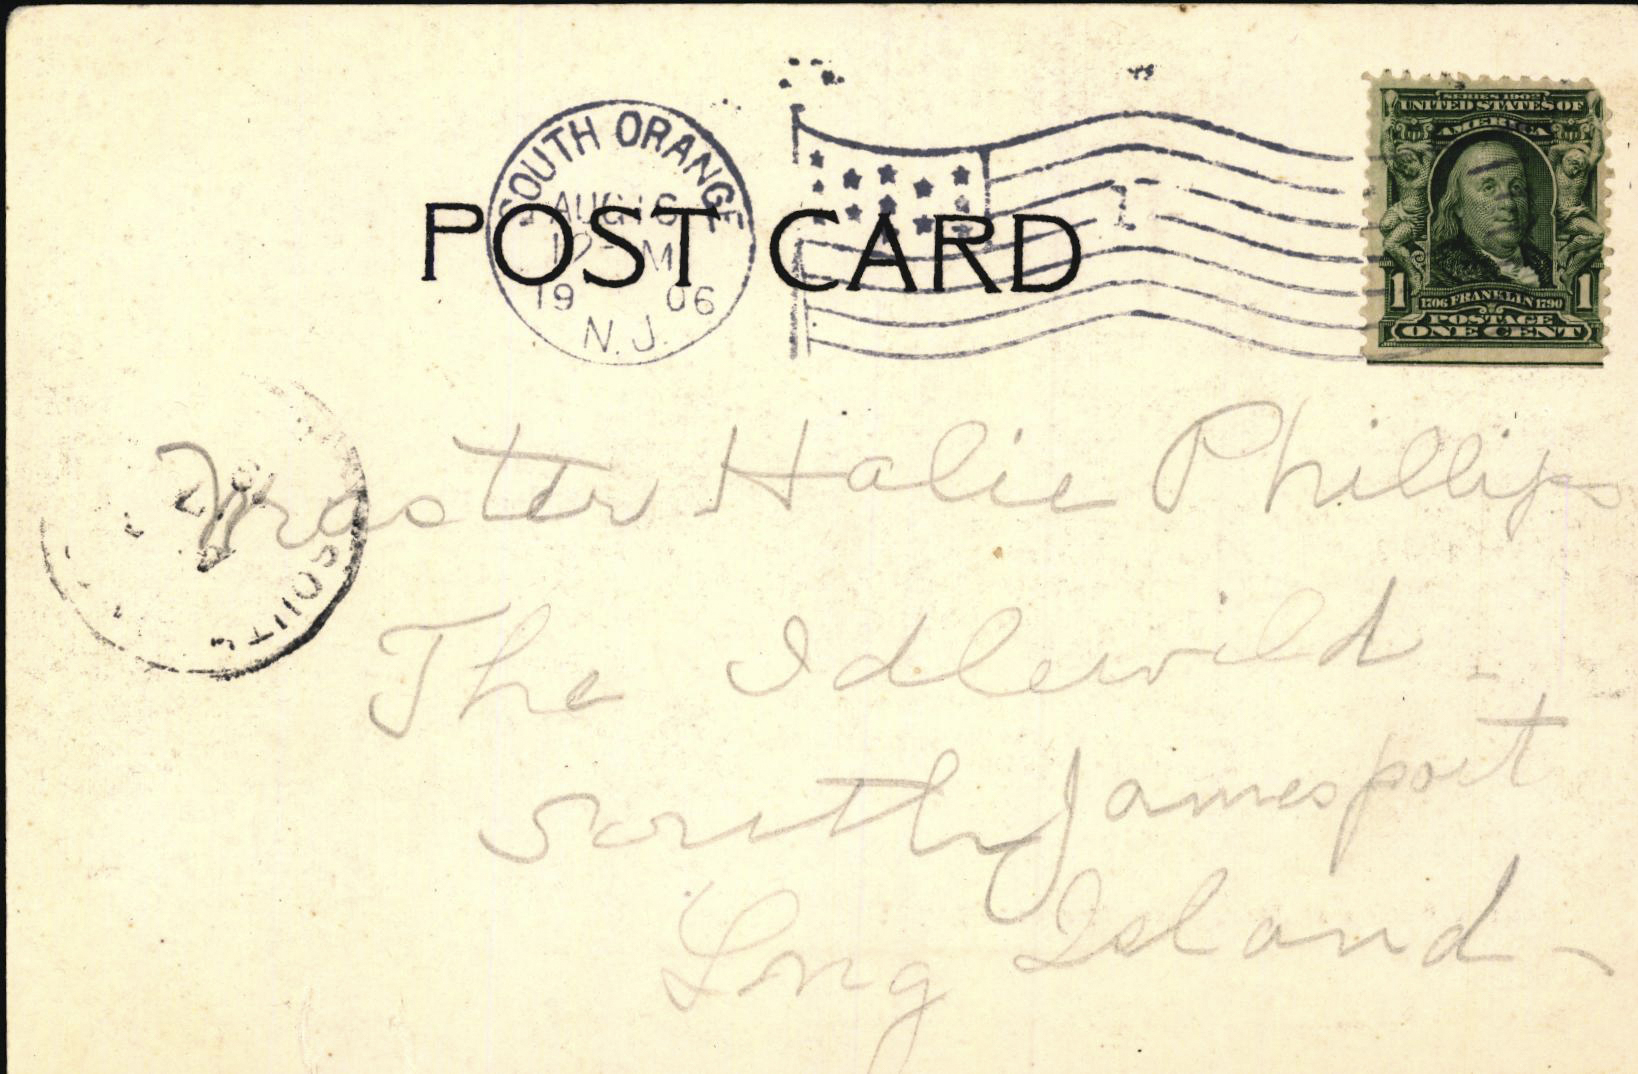 SOUTH ORANGE
AUG 16
12 M
19 06
N. J.
1
SERIES 1902
UNITED STATES OF
AMERICA
1 1706 FRANKLIN 1790 1
POSTAGE
ONE CENT
POST CARD
Master Halie Phillips
SOUTH
The Idlewild
South Jamesport
Long Island